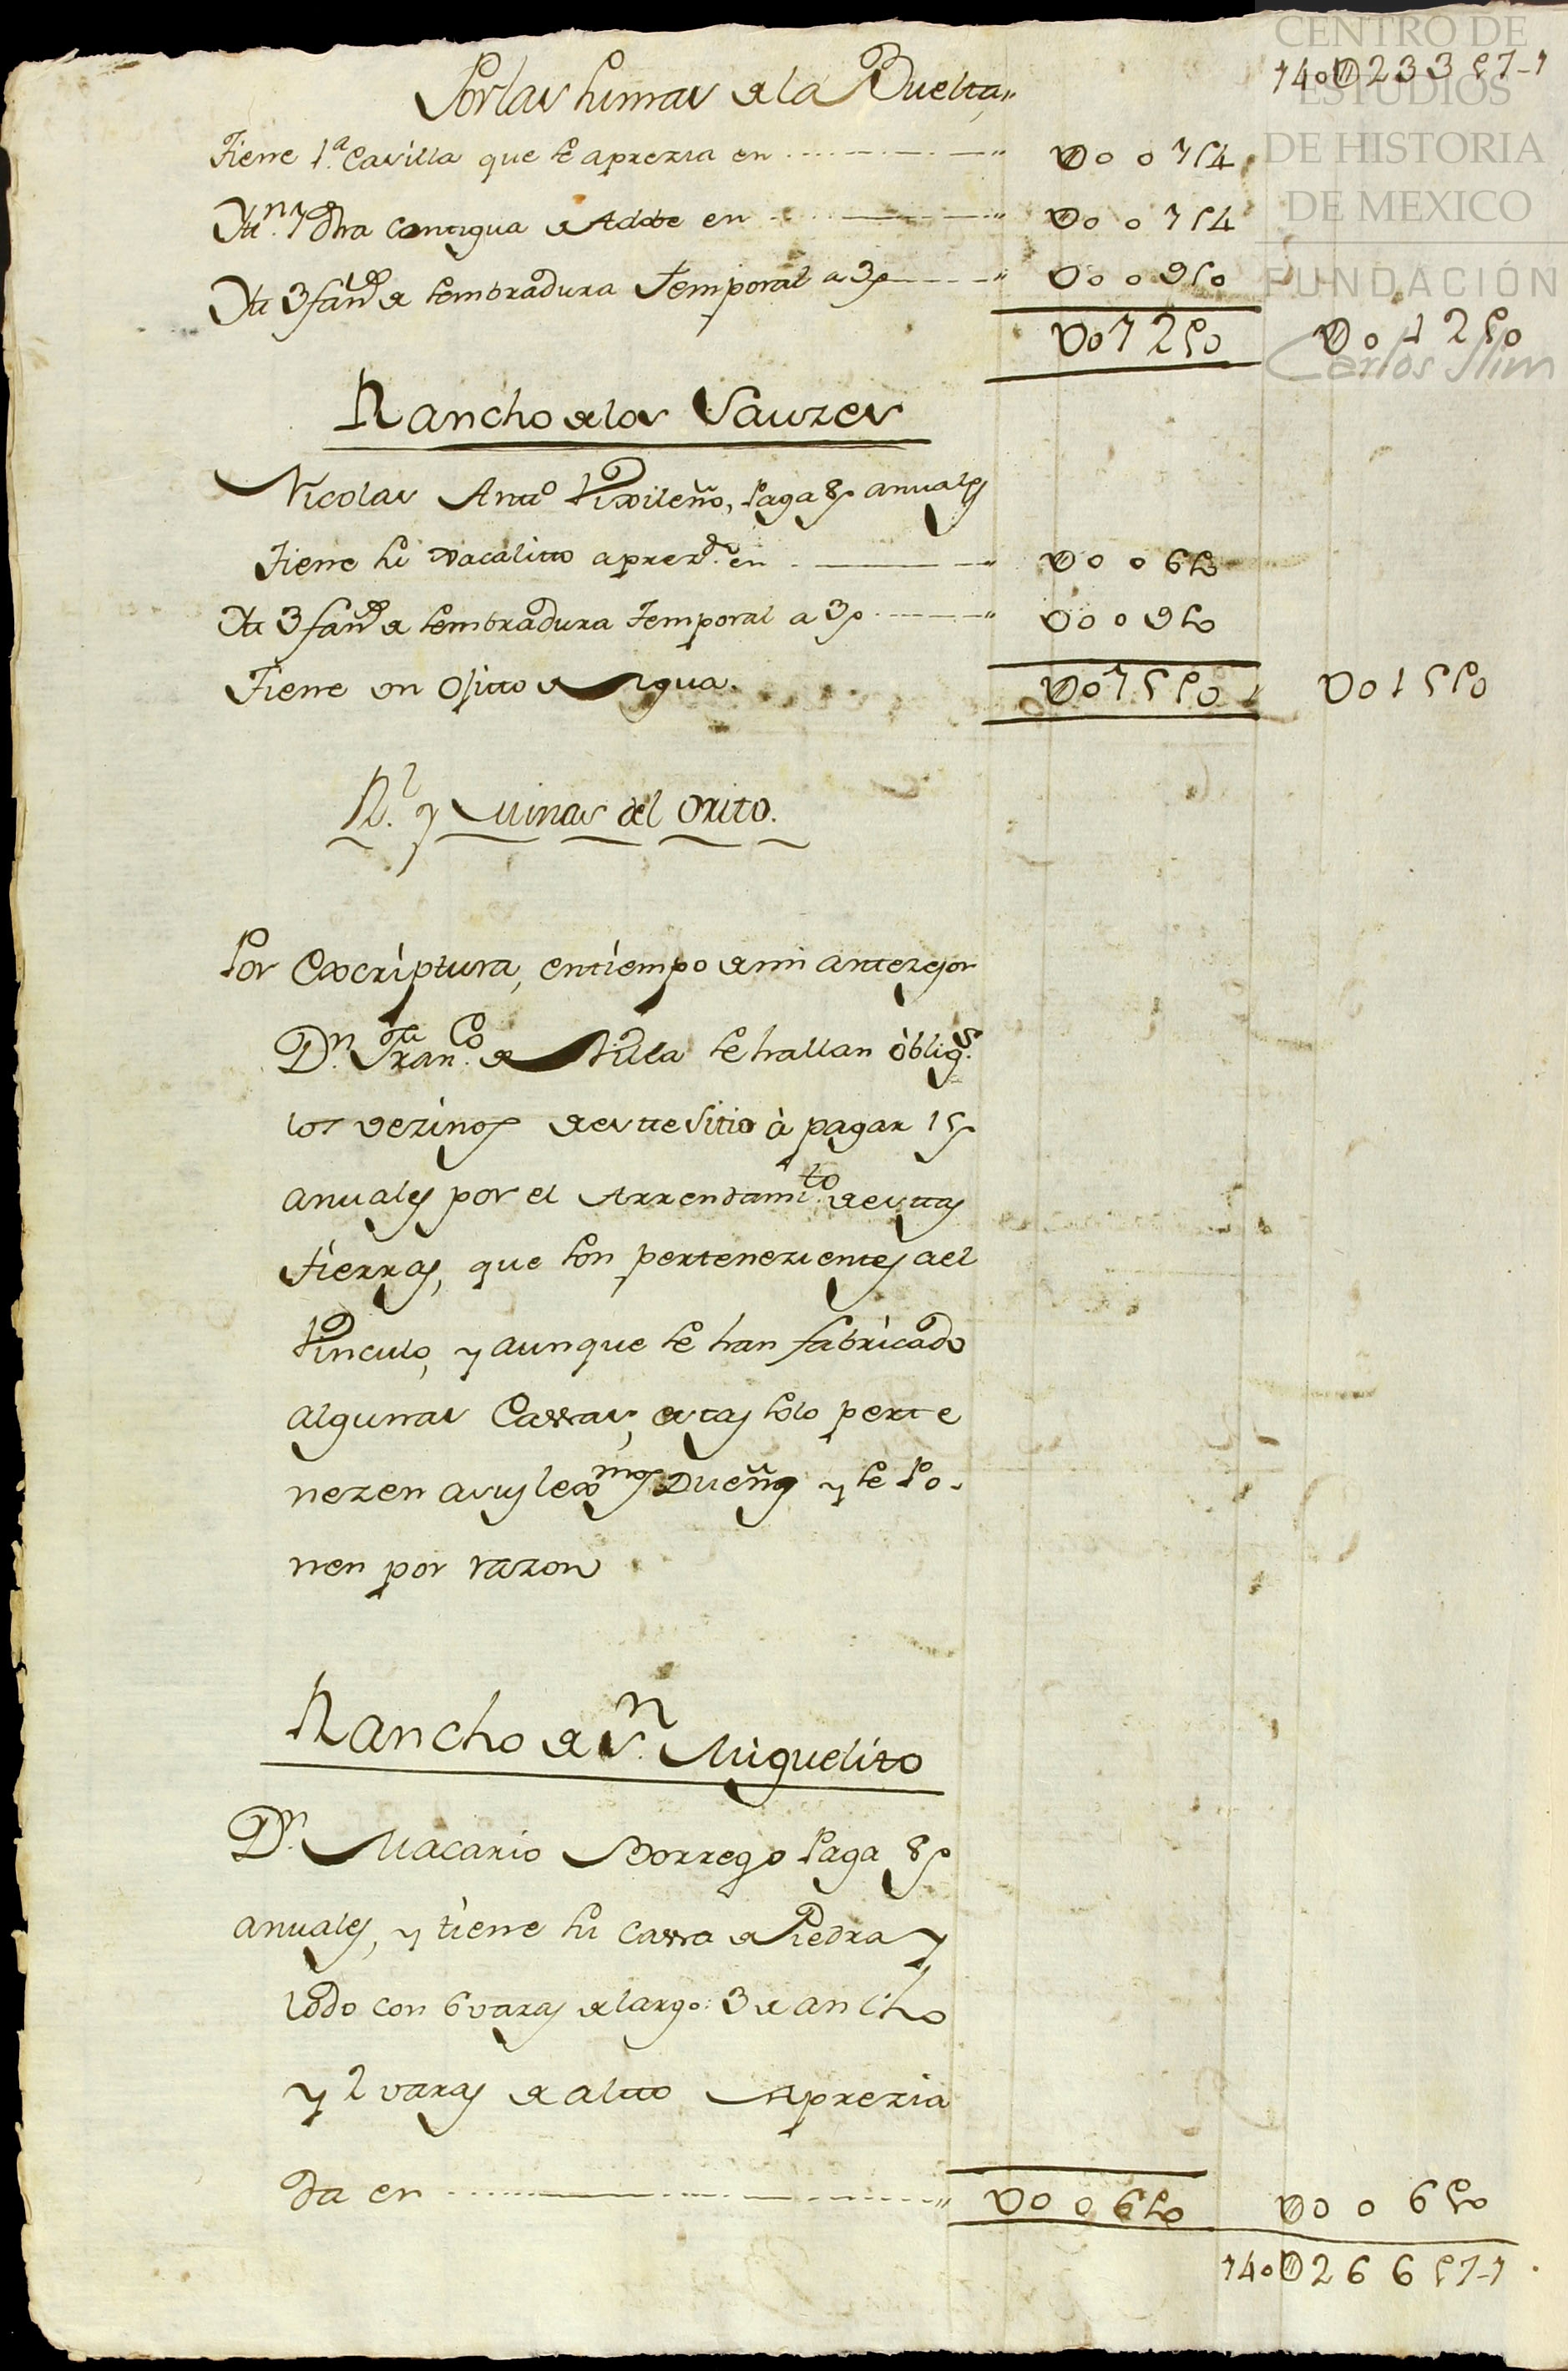 CENTRO DE
ESTUDIOS
DE HISTORIA
DE MEXICO
FUNDACIÓN
Carlos Slim
Por las sumas de la Buelta 140U233 p5-1
Tiene 1.ª Casilla que se aprezia en U00 p4
Ytt.n 1 dha contigua de Adobe en U00 p4
Ytt 3 fan.s de sembradura Temporal a 3p U009p0
U012p0 U012p0
Rancho de los Sauzes
Nicolas Antt.o Vixileño, Paga 8p anuales
Tiene su Jacalitto aprez.do en U006p0
Ytt 3 fan.s de sembradura temporal a 3p U009p0
Tiene un Ojitto de Agua. U015p0 U015p0
R.l y Minas del Orito.
Por Excriptura, en tiempo de mi antezesor
D.n Fran.co de Villa se hallan oblig.s
los vezinos de este Sitio à pagar 15p
anuales por el Arrendam.to de estas
tierras, que son pertenezientes ael
Vinculo, y aunque se han fabricado
algunas Cassas, estas solo perte
nezen a sus lex.mos Dueños y se Po-
nen por razon
Rancho de S.n Miguelito
D.n Macario Borrego Paga 8p
anuales, y tiene su cassa de Piedra y
lodo con 6 varas de largo: 3 de ancho
y 2 varas de altto Aprezia
da en U006p0 U006p0
140U266p5-1